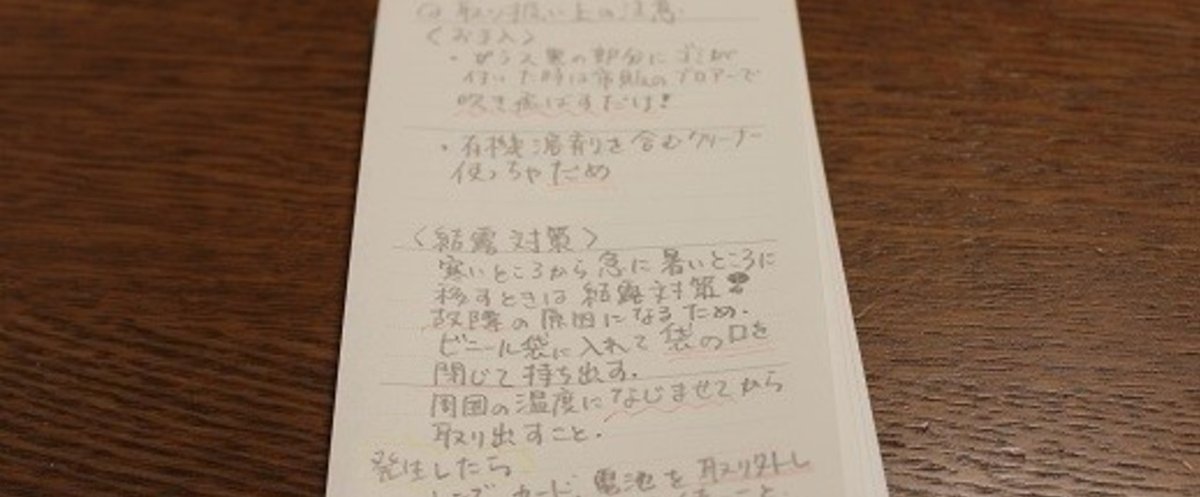 取り扱い上の注意
〈お手入〉
・ガラス面の部分にゴミが
付いた時は市販のブロアーで
吹き飛ばすだけ!
・有機溶剤を含むクリーナー
使っちゃだめ
〈結露対策〉
寒いところから急に暑いところに
移すときは結露対策!!
故障の原因になるため.
ビニール袋に入れて袋の口を
閉じて持ち出す.
周囲の温度になじませてから
取り出すこと.
発生したら
レンズ、カード、電池を取り外し
こと.